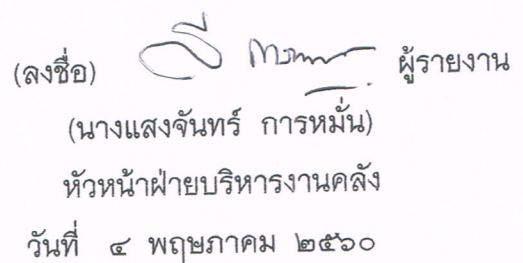 (ลงชื่อ) ผู้รายงาน
(นางแสงจันทร์ การหมั่น)
หัวหน้าฝ่ายบริหารงานคลัง
วันที่ ๔ พฤษภาคม ๒๕๖๐